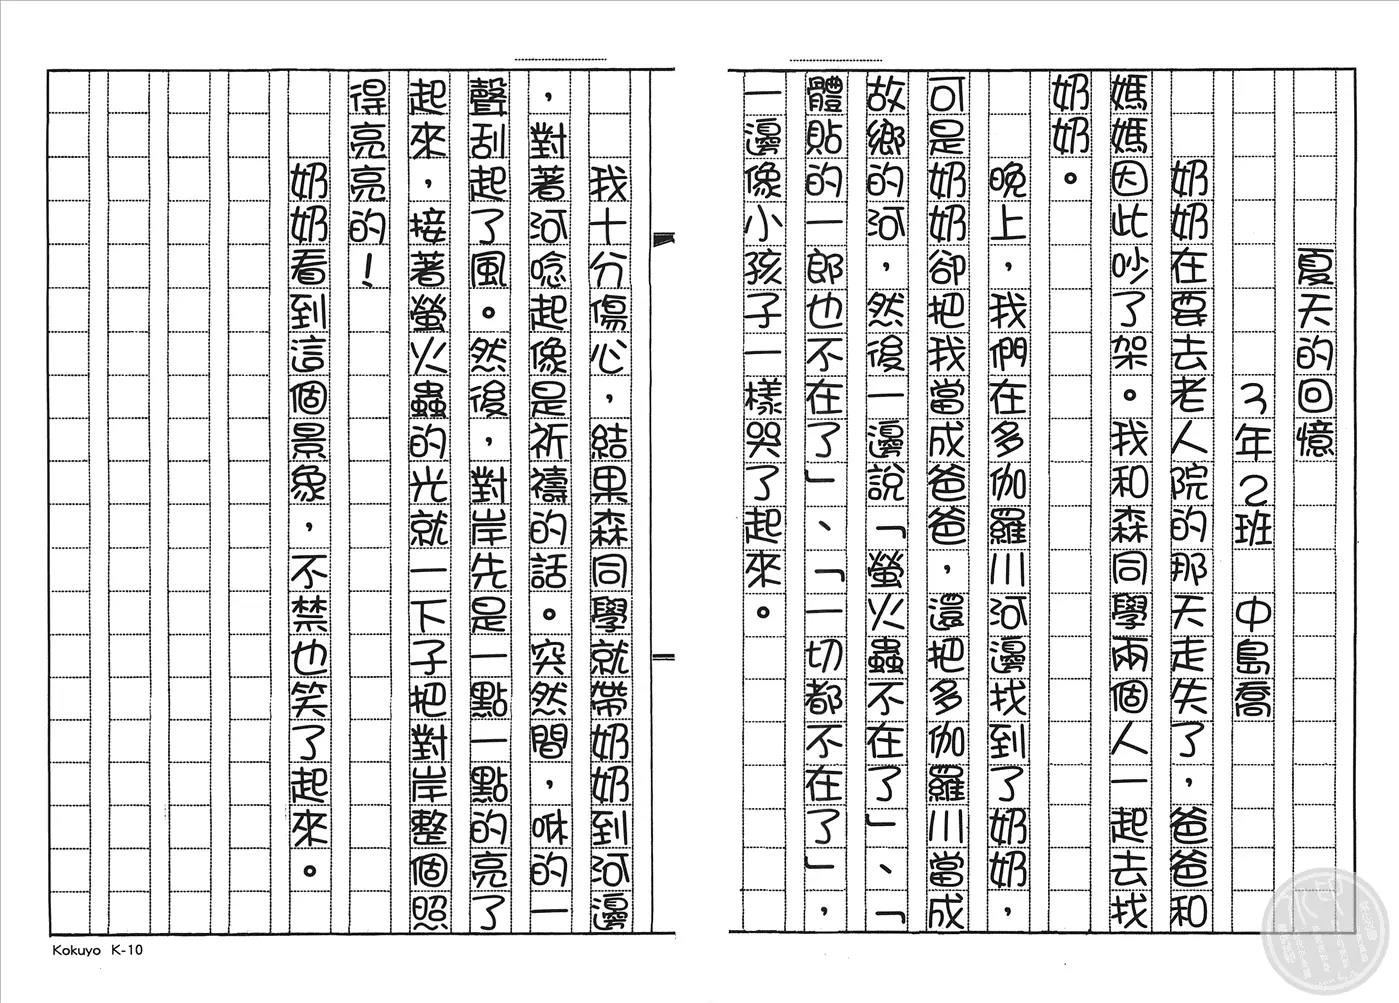 夏天的回憶
3年2班　中島喬
奶奶在要去老人院的那天走失了，爸爸和
媽媽因此吵了架。我和森同學兩個人一起去找
奶奶。
晚上，我們在多伽羅川河邊找到了奶奶，
可是奶奶卻把我當成爸爸，還把多伽羅川當成
故鄉的河，然後一邊說「螢火蟲不在了」、「
體貼的一郎也不在了」、「一切都不在了」，
一邊像小孩子一樣哭了起來。
我十分傷心，結果森同學就帶奶奶到河邊
，對著河唸起像是祈禱的話。突然間，咻的一
聲刮起了風。然後，對岸先是一點一點的亮了
起來，接著螢火蟲的光就一下子把對岸整個照
得亮亮的！
奶奶看到這個景象，不禁也笑了起來。
Kokuyo K-10